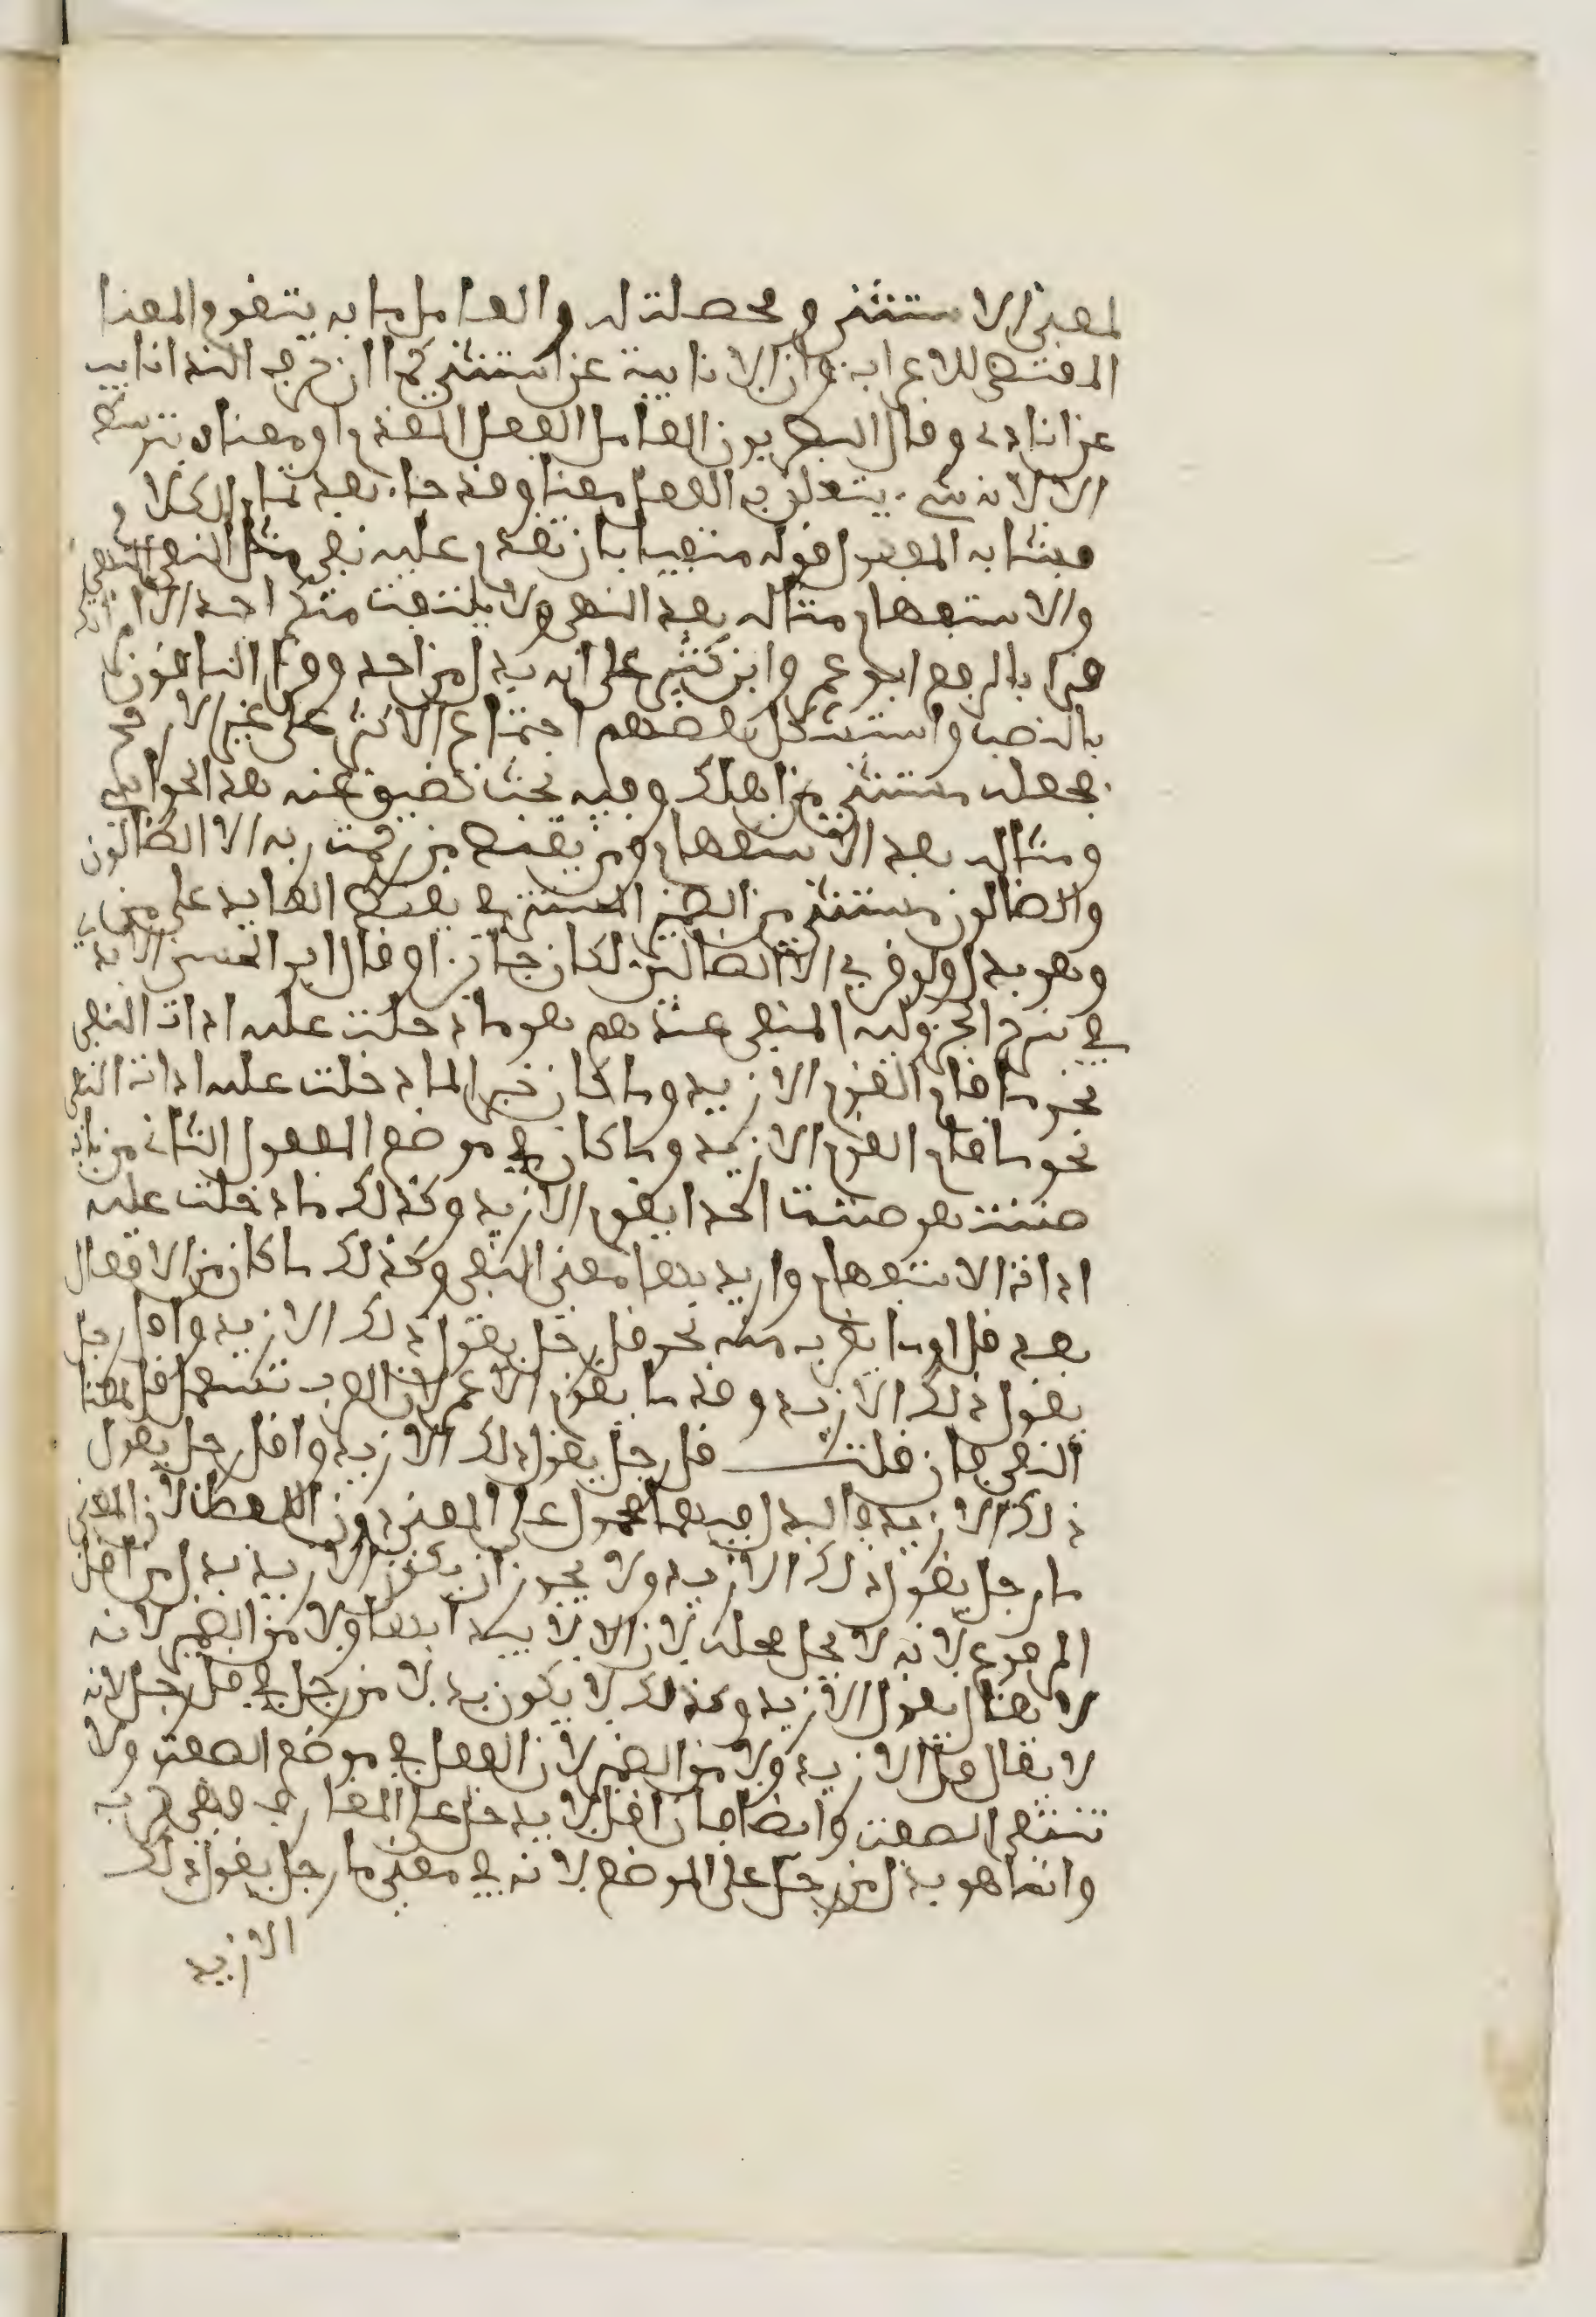 لمعنى الاستثنى ومحصلت له والعامل ما به يتقوم المعنا
المقتضى للاعراب وان الا نايبة عن استثنى كما ان حرف الندا نايب
عن انادى وقال البصريون العامل الفعل المقدم او معناه بتوسط
الا لانه شىء يتعلق به الفعل معنا وقد جاء بعد تمام الكلام
فشابه المفعول قوله منفيا بان تقدم عليه نفى مثل النهى
والاستفهام مثاله بعد النهى ولا يلتفت منكم احد الا امراتك
قرا بالرفع ابو عمر وابن كثير على انه بدل من احد وقرا الباقون
بالنصب واستشكل بعضهم اجتماع الاكثر على غير الارجح
بجعله مستثنى من اهلك وفيه بحث تضيق عنه هذه الحواشى
ومثاله بعد الاستفهام ومن يقنط من رحمت ربه الا الضالون
والضالون مستثنى من الضمير المستتر فى يقنط العايد على من
وهو بدل ولو قرى الا الضالين لكان جايزا وقال ابو الحسن الابدى
فى شرح الجزولية المنفى عندهم هو ما دخلت عليه ادات النفى
نحو ما قام القوم الا زيد وما كان خبرا لما دخلت عليه اداة النفى
نحو ما قام القوم الا زيد وما كان فى موضع المفعول الثانى من باب
ظننت نحو ظننت احدا يقوم الا زيد وكذلك ما دخلت عليه
اداة الاستفهام واريد بها معنى النفى وكذلك ما كان من الافعال
بعد قل او ما يقرب منه نحو قل رجل يقول ذلك الا زيد واقل رجل
يقول ذلك الا زيد وقد ما يقوم الا عمر لان العرب تستعمل قل لمعنا
النفى فان قلت قل رجل يقول ذلك الا زيد واقل رجل يقول
ذلك الا زيد فالبدل فيهما محمول على المعنى دون اللفظ لان المعنى
ما رجل يقول ذلك الا زيد ولا يجوز ان يكون الا زيد بدل من اقل
المرفوع لانه لا يحل محله لان الا لا يبتدا بها ولا من الضمير لانه
لا يقال يقول الا زيد وكذلك لا يكون بدلا من رجل فى قل رجل لانه
لا يقال قل الا زيد ولا من الضمير لان الفعل فى موضع الصفت ولا
تنتفى الصفت وايضا فان اقل لا يدخل على المعارف
وانما هو بدل من رجل على الموضع لانه فى معنى ما رجل يقول ذلك
الا زيد